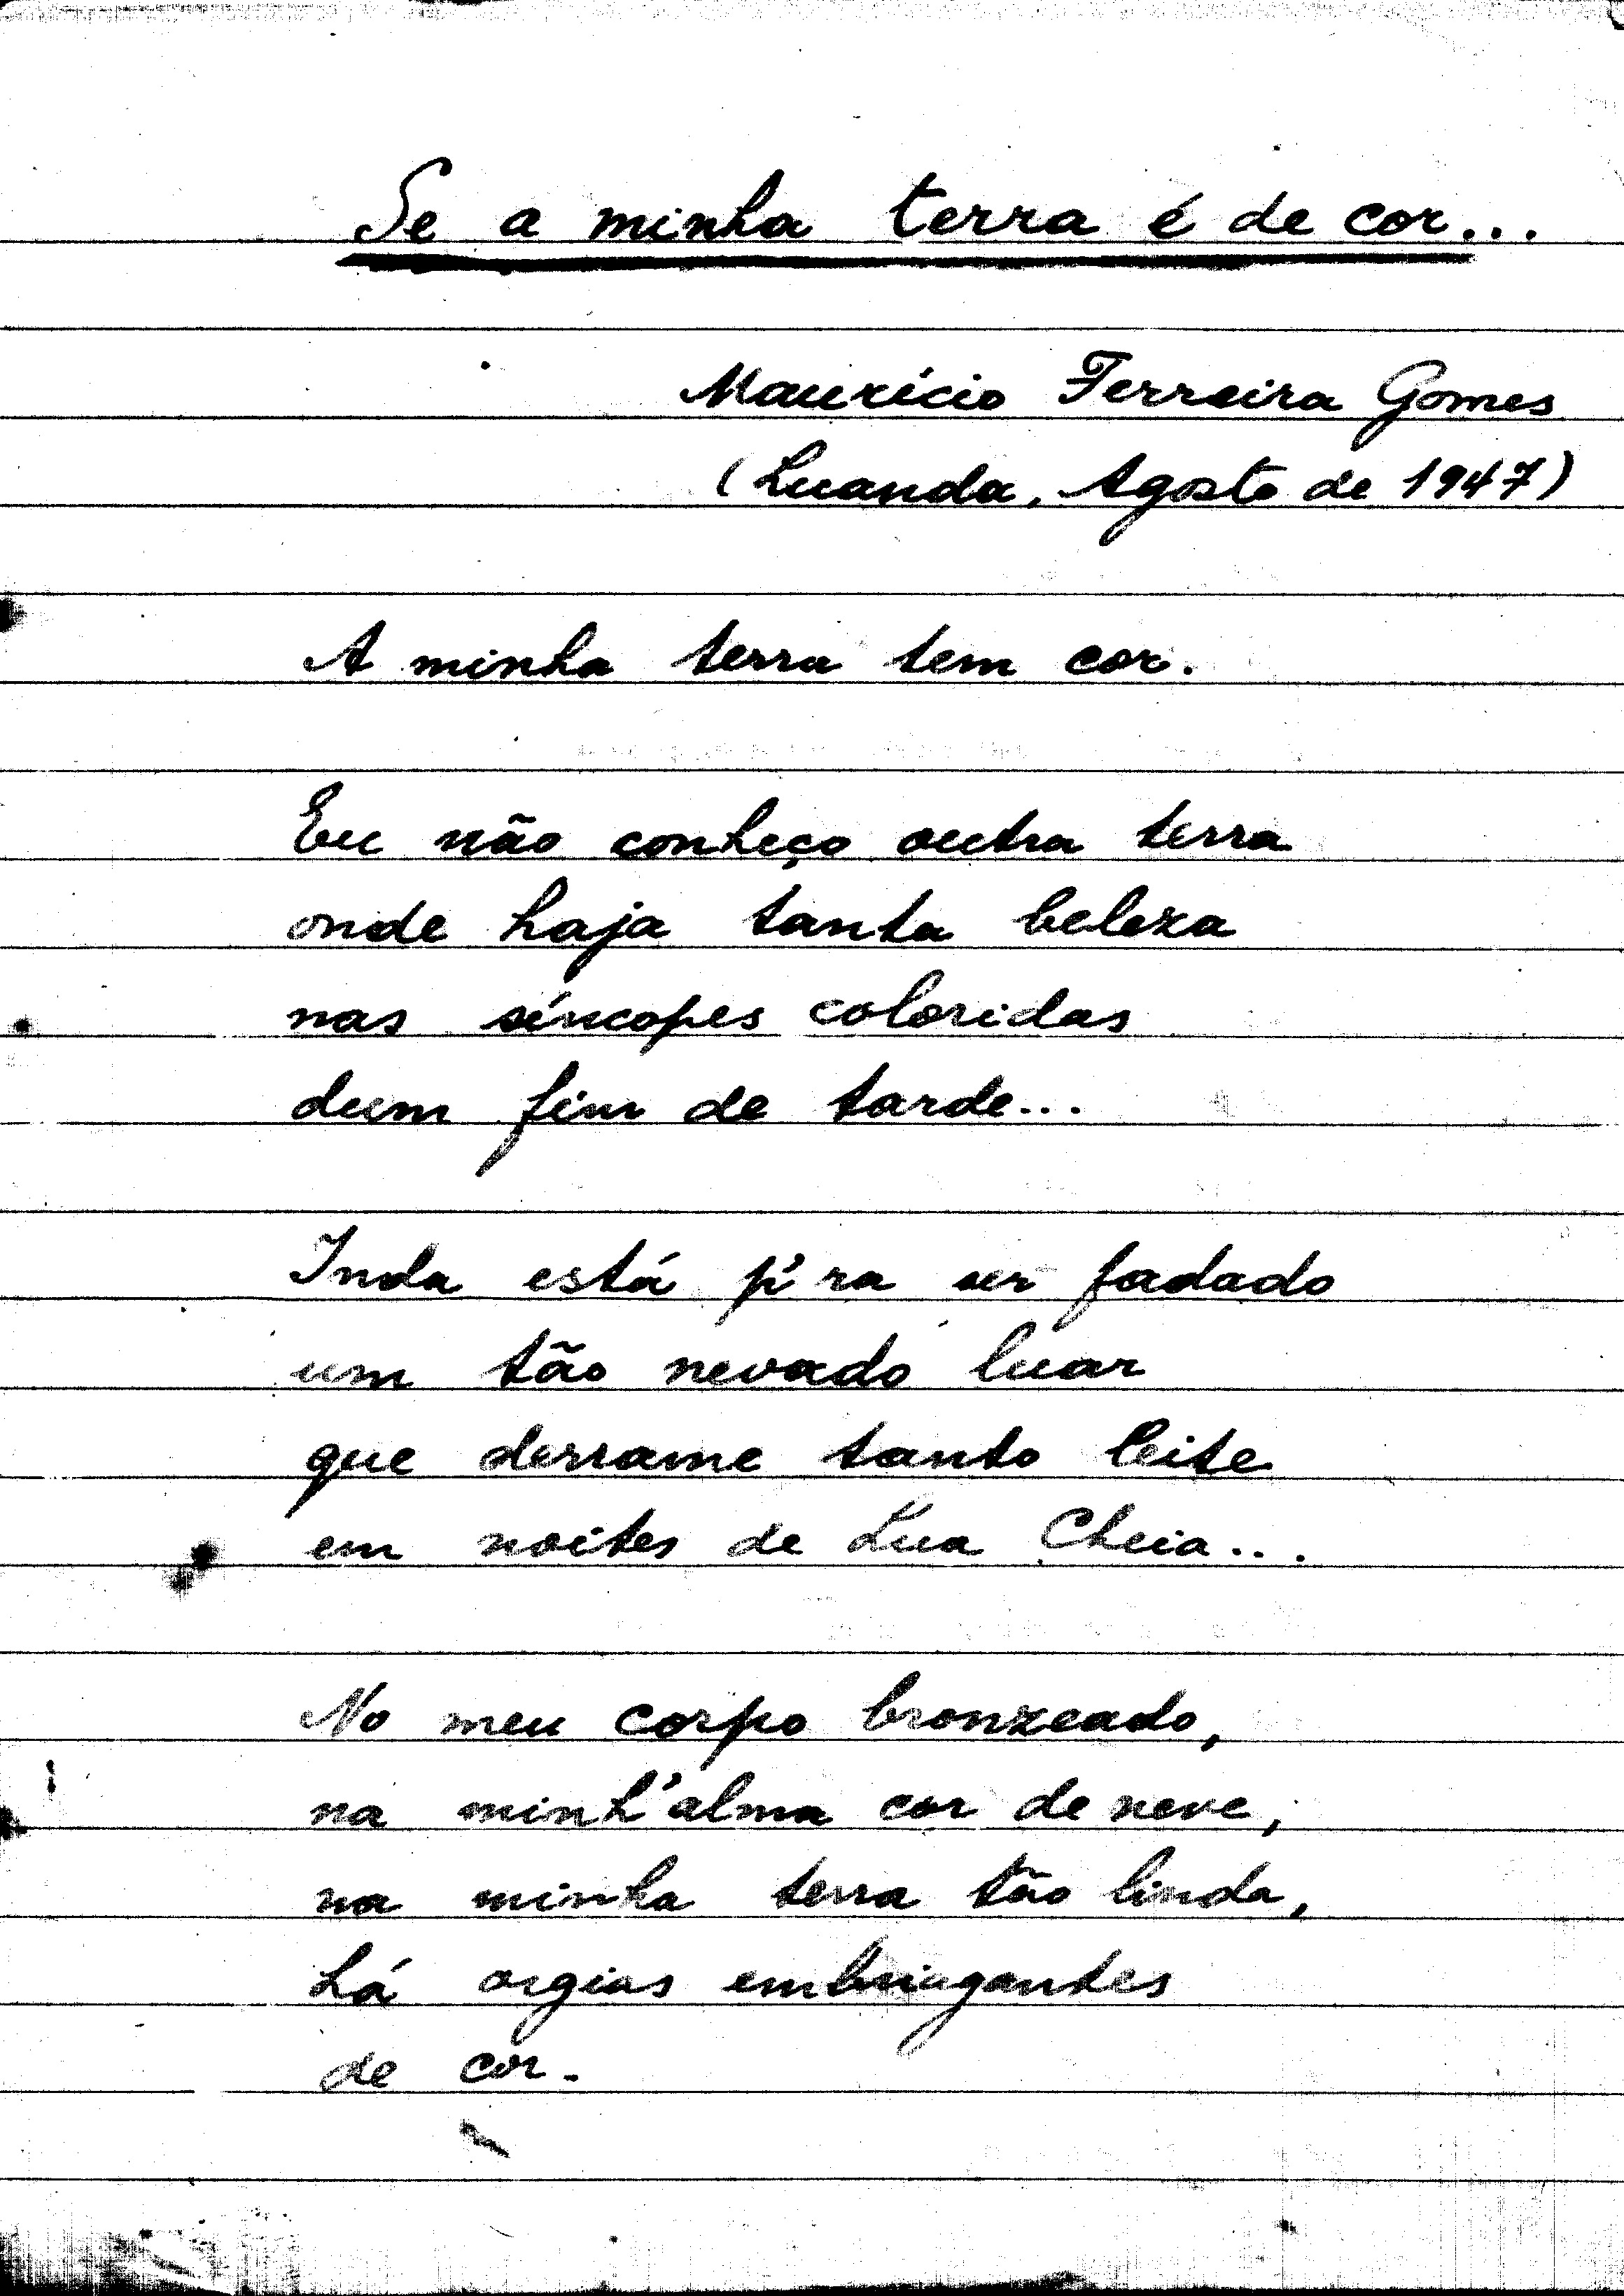 Se a minha terra é de cor...
Maurício Ferreira Gomes
(Luanda, Agosto de 1947)
A minha terra tem cor.
Eu não conheço outra terra
onde haja tanta beleza
nas síncopes coloridas
dum fim de tarde...
Inda está p'ra ser fadado
um tão nevado luar
que derrame tanto leite
em noites de Lua Cheia...
No meu corpo bronzeado,
na minh'alma cor de neve,
na minha terra tão linda,
há orgias embriagantes
de cor.